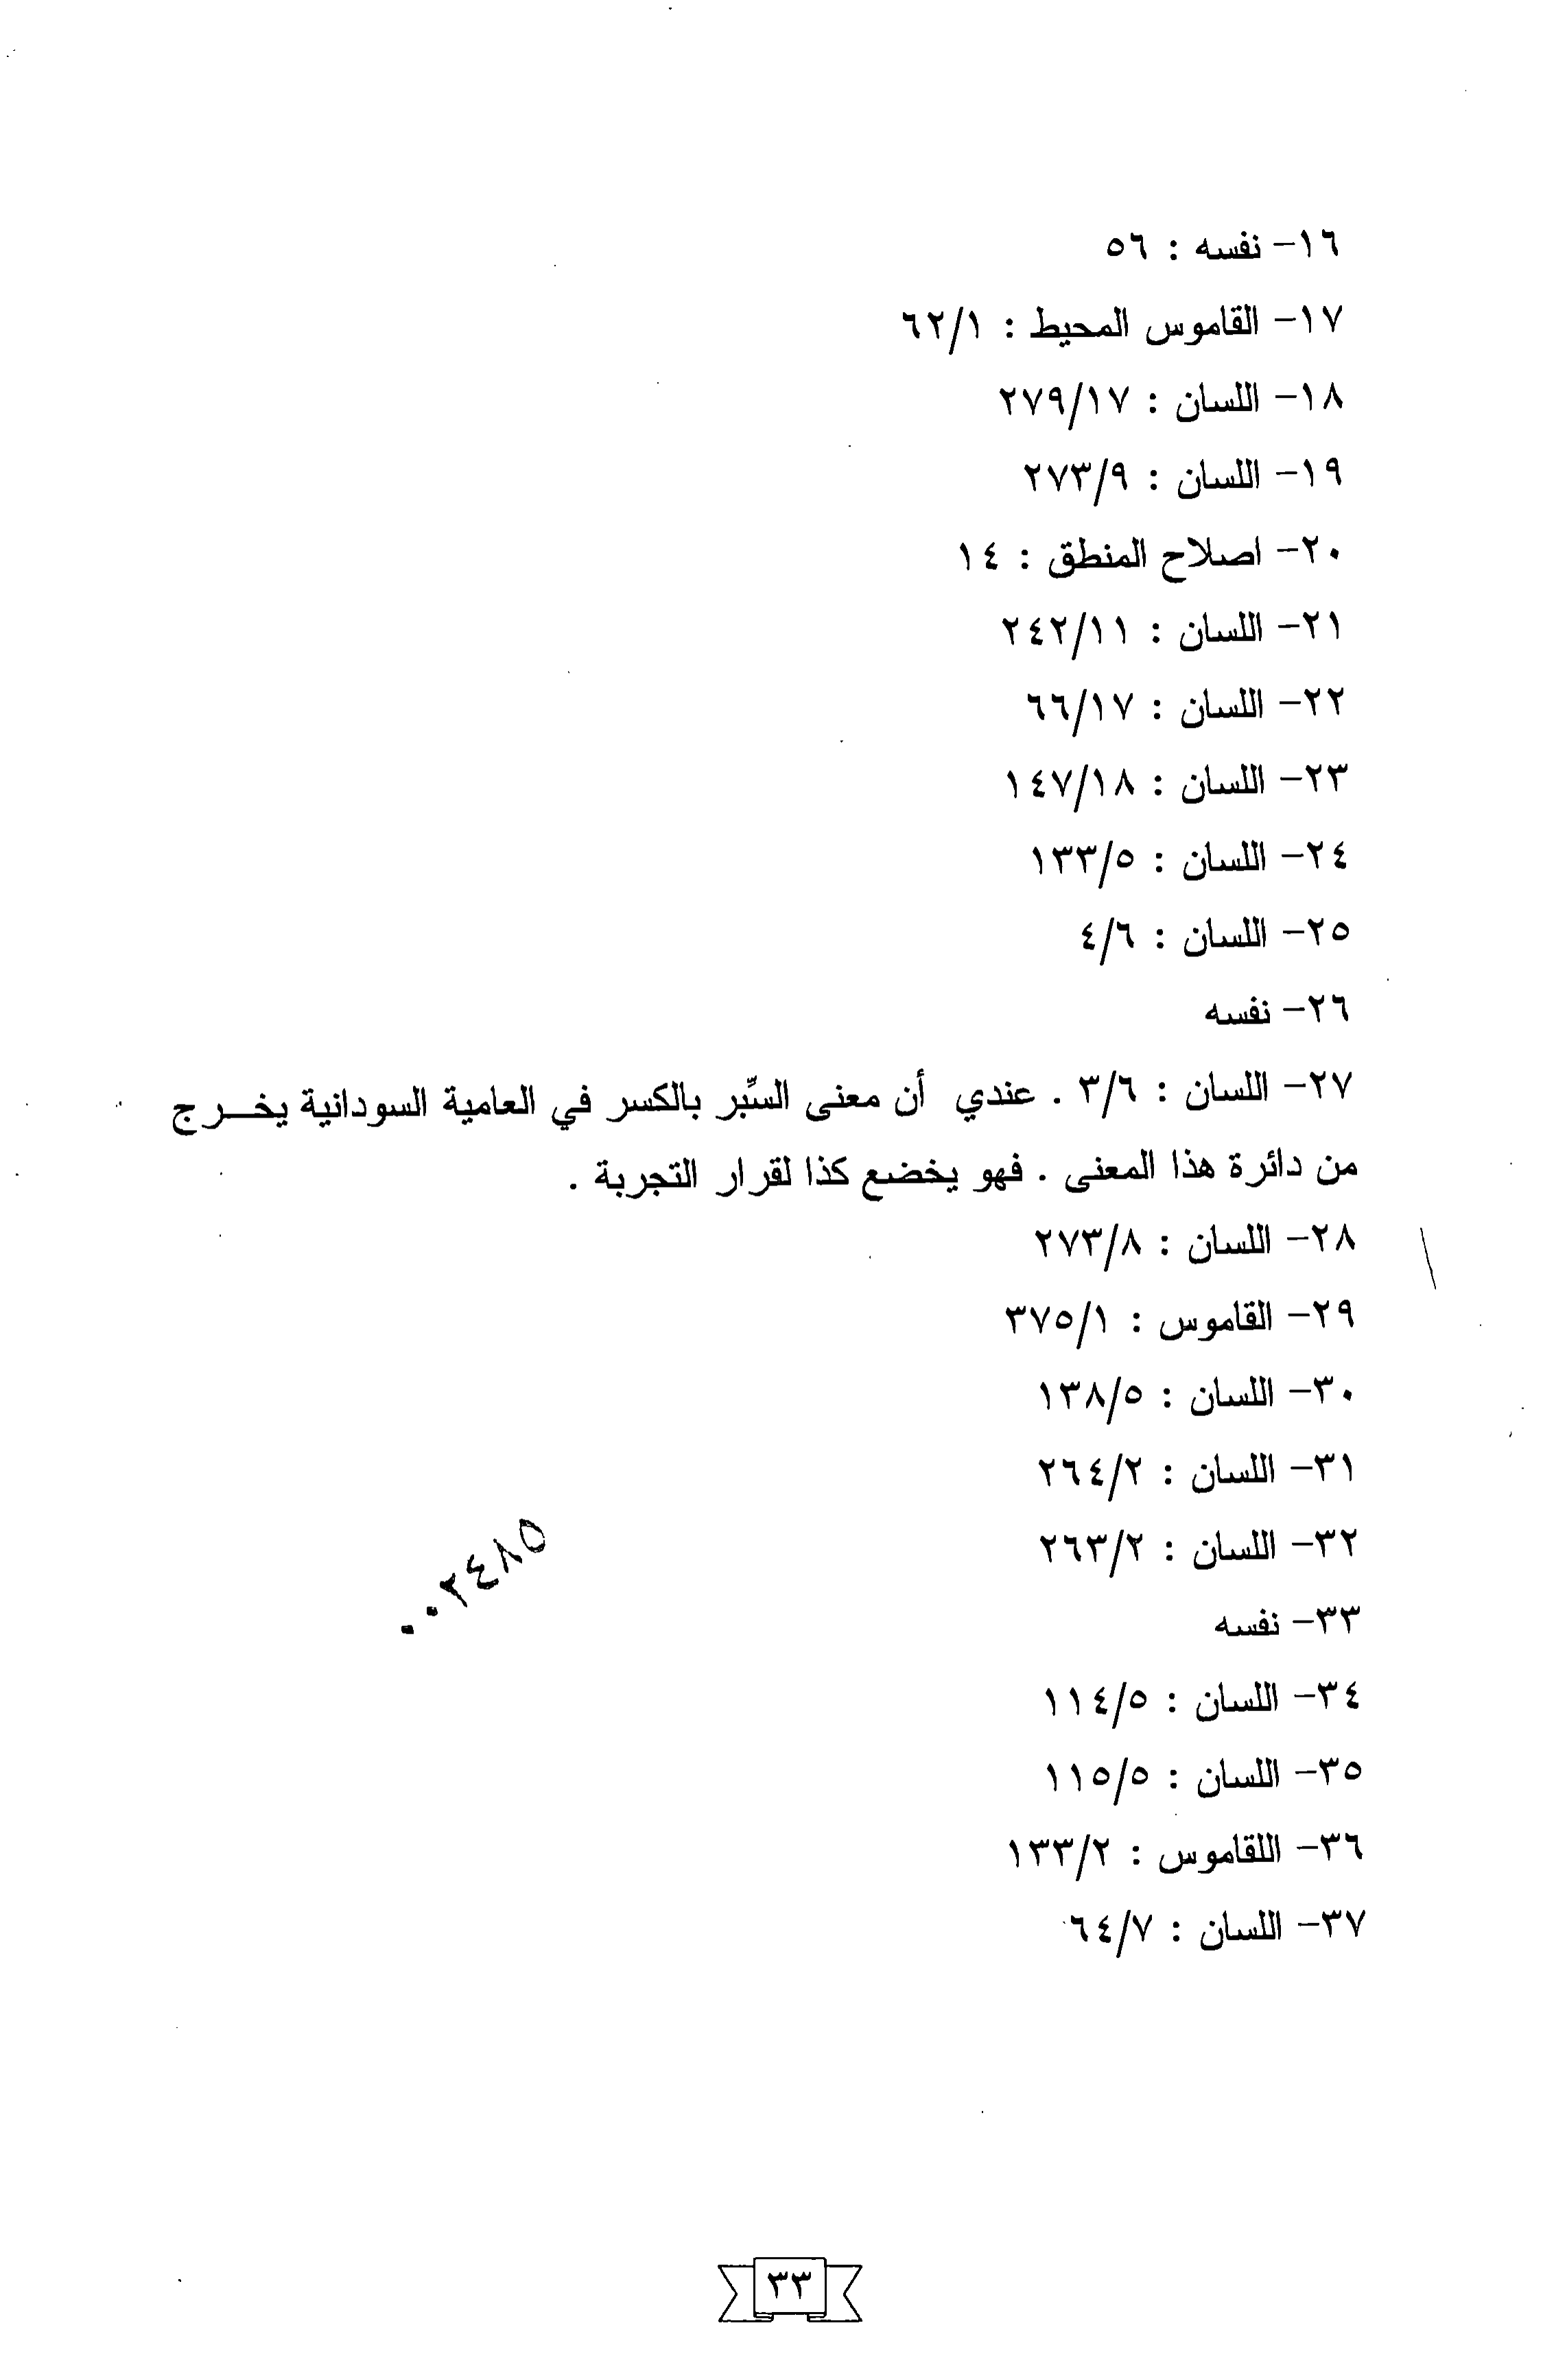 ١٦- نفسه : ٥٦
١٧- القاموس المحيط : ٦٢/١
١٨- اللسان : ٢٧٩/١٧
١٩- اللسان : ٢٧٣/٩
٢٠- اصلاح المنطق : ١٤
٢١- اللسان : ٢٤٢/١١
٢٢- اللسان : ٦٦/١٧
٢٣- اللسان : ١٤٧/١٨
٢٤- اللسان : ١٣٣/٥
٢٥- اللسان : ٤/٦
٢٦- نفسه
٢٧- اللسان : ٣/٦ . عندي أن معنى السِّبر بالكسر في العامية السودانية يخـــرج
من دائرة هذا المعنى . فهو يخضع كذا لقرار التجربة .
٢٨- اللسان : ٢٧٣/٨
٢٩- القاموس : ٣٧٥/١
٣٠- اللسان : ١٣٨/٥
٣١- اللسان : ٢٦٤/٢
٣٢- اللسان : ٢٦٣/٢
٠٠٢٤٨٥
٣٣- نفسه
٣٤- اللسان : ١١٤/٥
٣٥- اللسان : ١١٥/٥
٣٦- اللقاموس : ١٣٣/٢
٣٧- اللسان : ٦٤/٧
٣٣